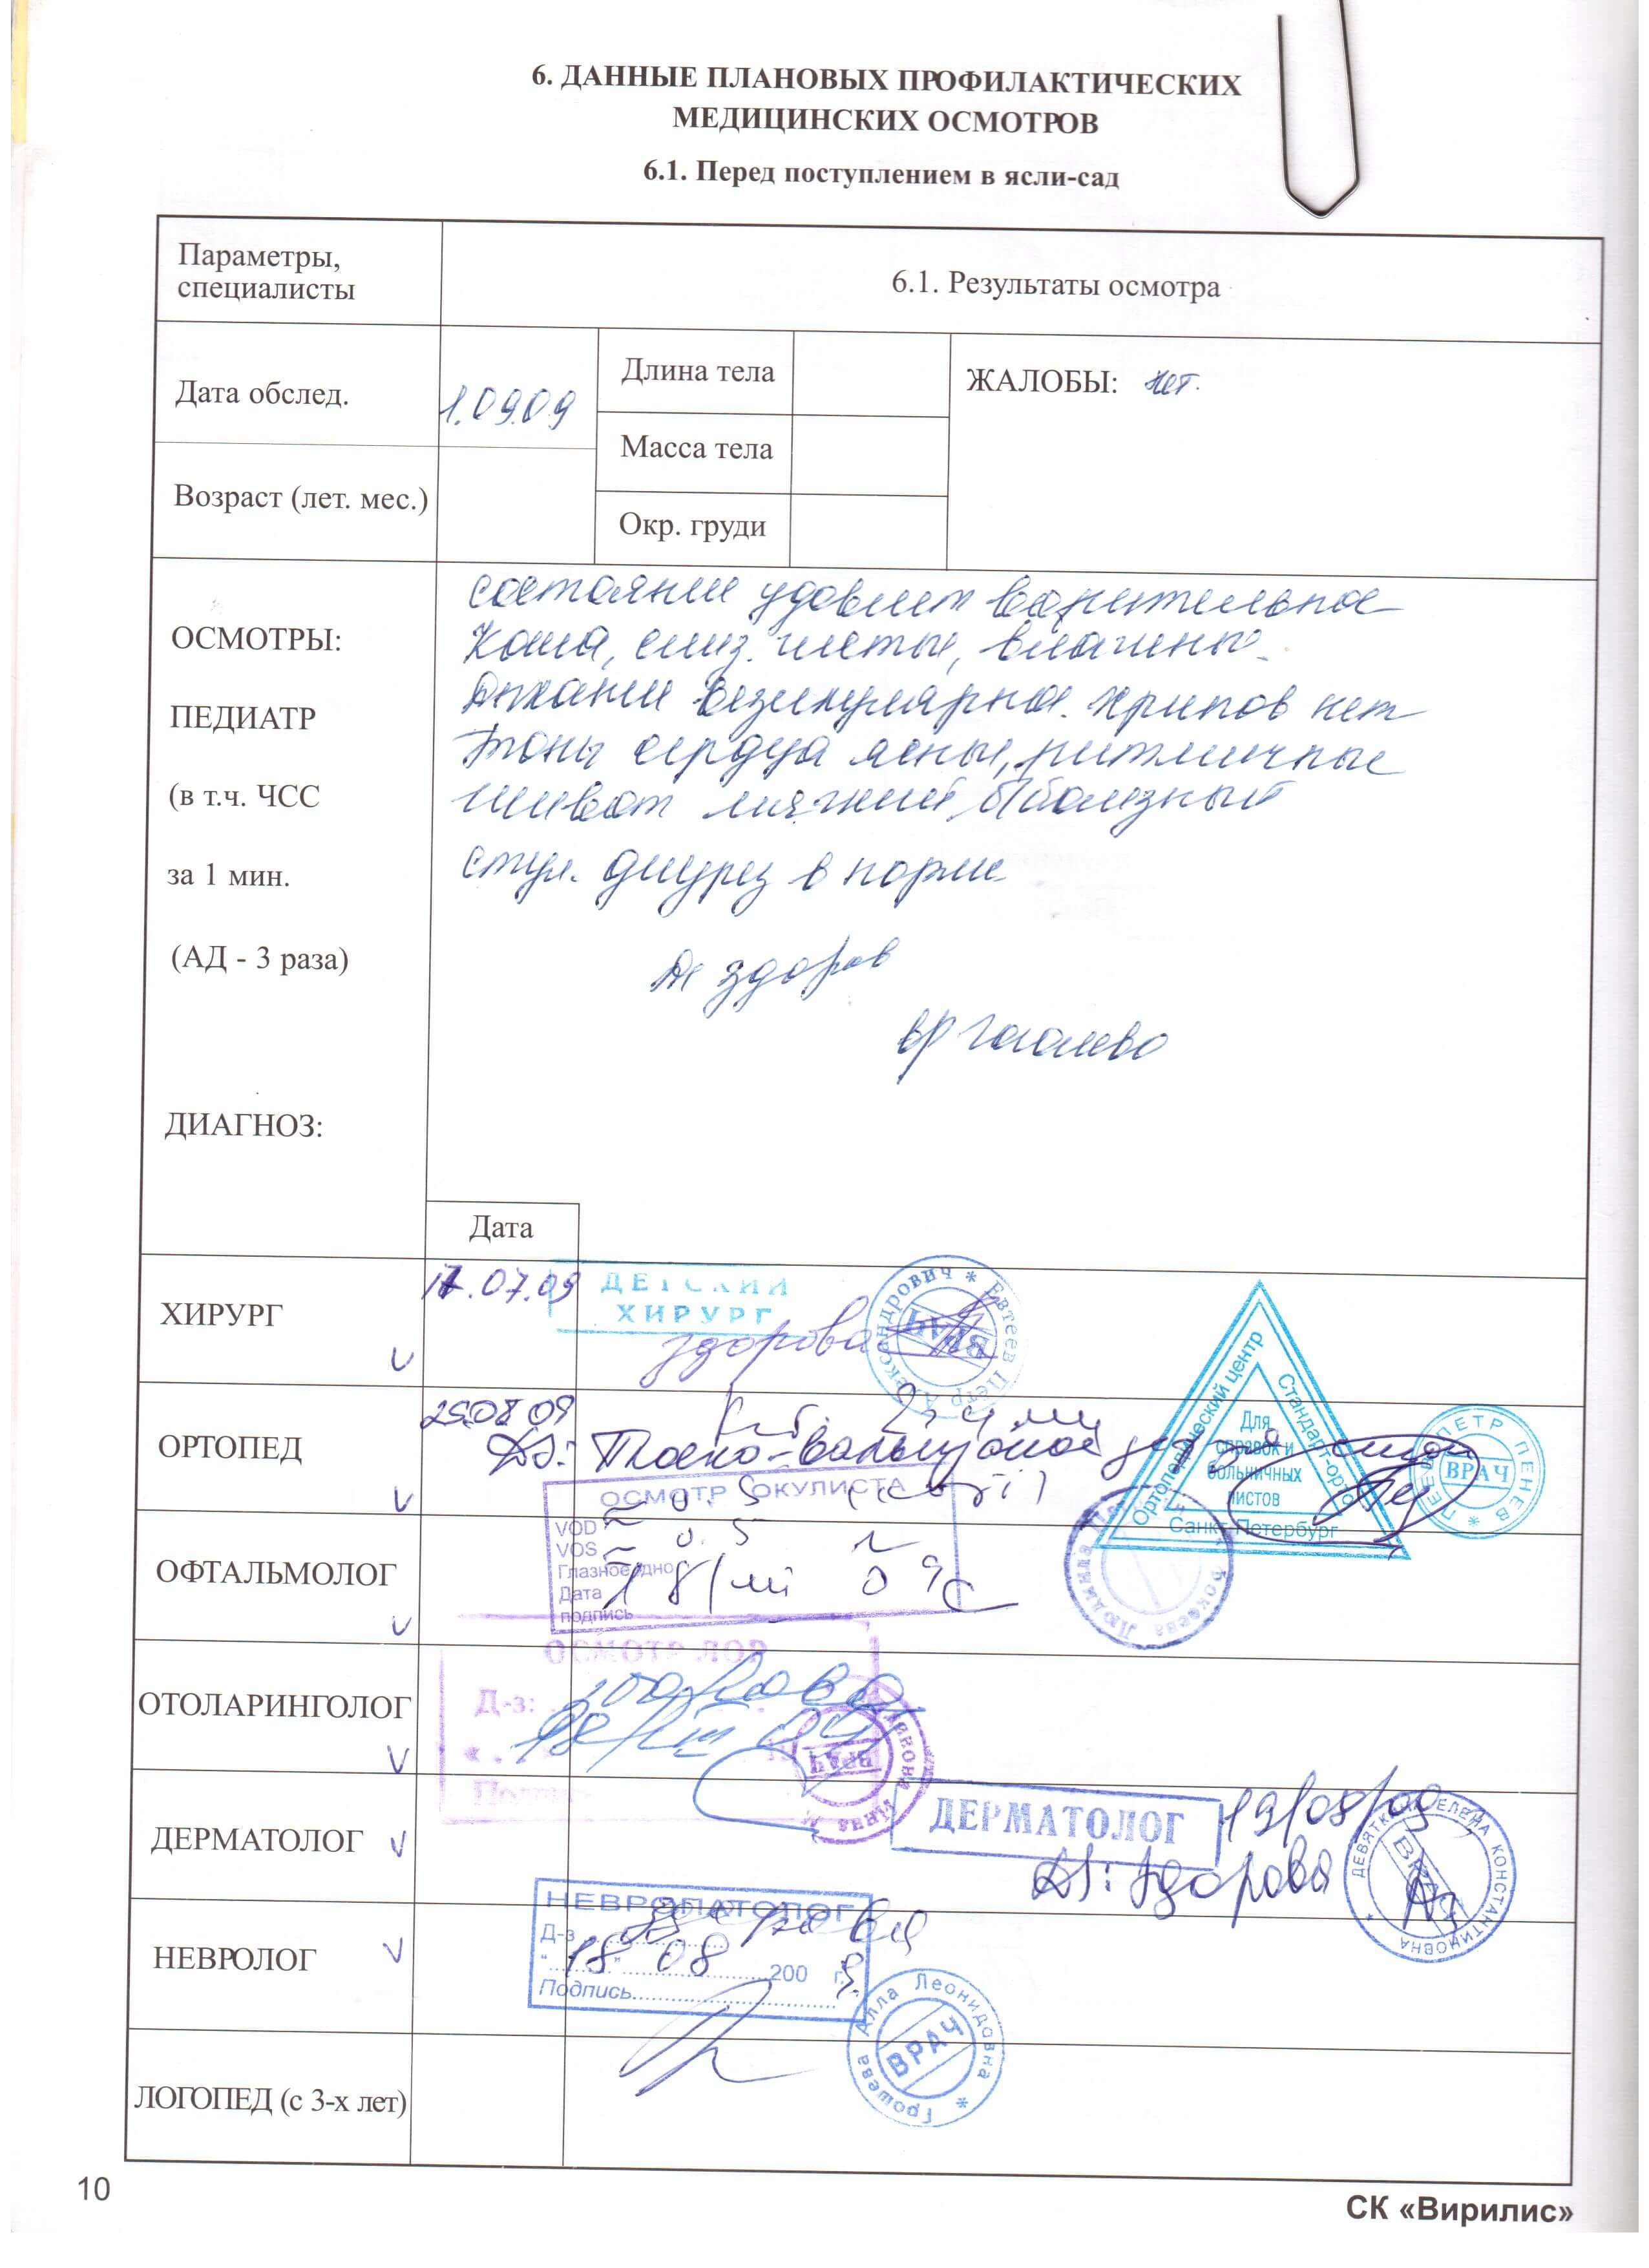 6. ДАННЫЕ ПЛАНОВЫХ ПРОФИЛАКТИЧЕСКИХ
МЕДИЦИНСКИХ ОСМОТРОВ
6.1. Перед поступлением в ясли-сад
Параметры,
специалисты
6.1. Результаты осмотра
Дата обслед.
1.09.09
Длина тела
ЖАЛОБЫ: нет.
Масса тела
Возраст (лет. мес.)
Окр. груди
ОСМОТРЫ:
ПЕДИАТР
(в т.ч. ЧСС
за 1 мин.
(АД - 3 раза)
состояние удовлетворительное
Кожа, слиз. чистые, влажные.
Дыхание везикулярное. Хрипов нет
Тоны сердца ясные, ритмичные
живот мягкий, б/болезный
стул. диурез в норме
Дз здоров
вр Гоголева
ДИАГНОЗ:
Дата
ХИРУРГ
V
17.07.09
ДЕТСКИЙ
ХИРУРГ
здорова
Евтеев Пётр Александрович *
ВРАЧ
ОРТОПЕД
V
25.08.09
Ds: Плоско-вальгусная
Ортопедический центр
Стандарт-орто
Санкт-Петербург
Для
справок и
больничных
листов
ПЕТР ПЕНЕВ
ВРАЧ
ОФТАЛЬМОЛОГ
V
ОСМОТР ОКУЛИСТА
VOD 0.5
VOS 0.5
Глазное дно
Дата 18/VIII 09
подпись
Людмила
ОТОЛАРИНГОЛОГ
V
ОСМОТР ЛОР
Д-з: здорова
18/VIII 09
ВРАЧ
ДЕРМАТОЛОГ V
ДЕРМАТОЛОГ
19/08/09
Ds: Здорова
ДЕВЯТКИНА ЕЛЕНА КОНСТАНТИНОВНА
ВРАЧ
НЕВРОЛОГ
V
НЕВРОПАТОЛОГ
Д-з здорова
"18" 08 2009 г.
Подпись
Грошева Алла Леонидовна *
ВРАЧ
ЛОГОПЕД (с 3-х лет)
10
СК «Вирилис»